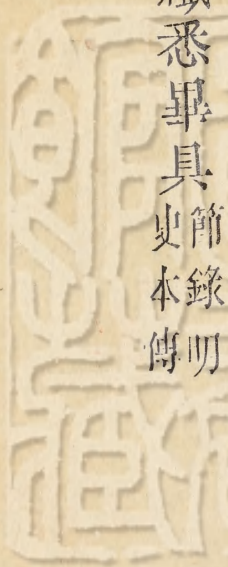 悉畢具
節錄明
史本傳